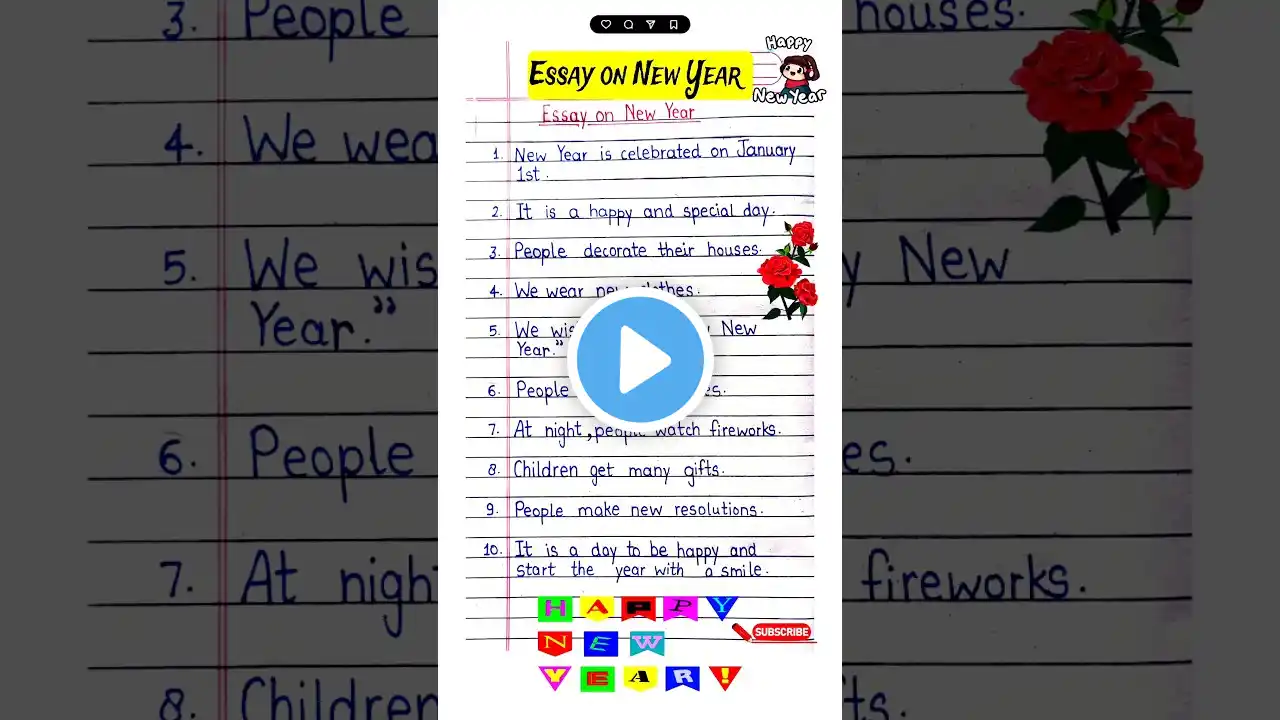 Happy
New Year
ESSAY ON NEW YEAR
Essay on New Year
1. New Year is celebrated on January
1st.
2. It is a happy and special day.
3. People decorate their houses.
4. We wear new clothes.
5. We New
Year.”
6. People
7. At night, people watch fireworks.
8. Children get many gifts.
9. People make new resolutions.
10. It is a day to be happy and
start the year with a smile.
HAPPY
NEW
YEAR!
SUBSCRIBE
3. People
4. We
5. We
Year.”
6. People
7. At
8.
houses.
New
fireworks.